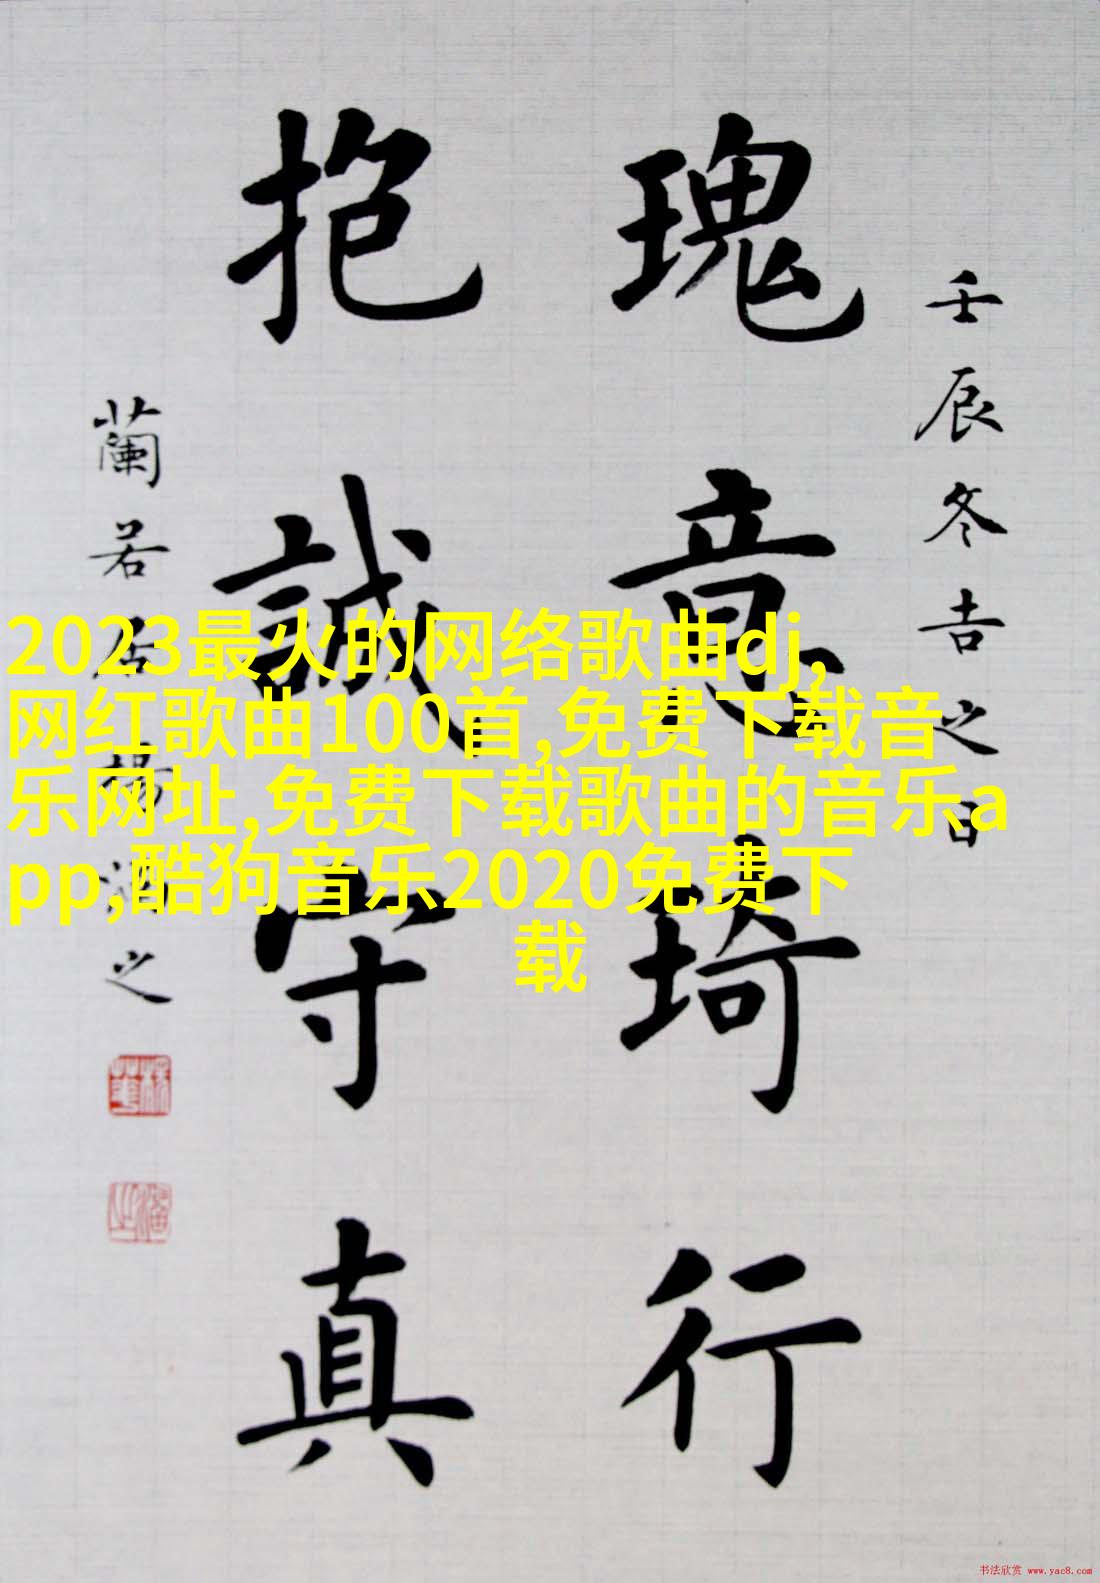 壬辰冬吉之日
瑰意琦行
抱誠守真
蘭若居楊酒之
2023最火的网络歌曲dj,
网红歌曲100首,免费下载音
乐网址,免费下载歌曲的音乐a
pp,酷狗音乐2020免费下
载
书法欣赏 www.yac8.com